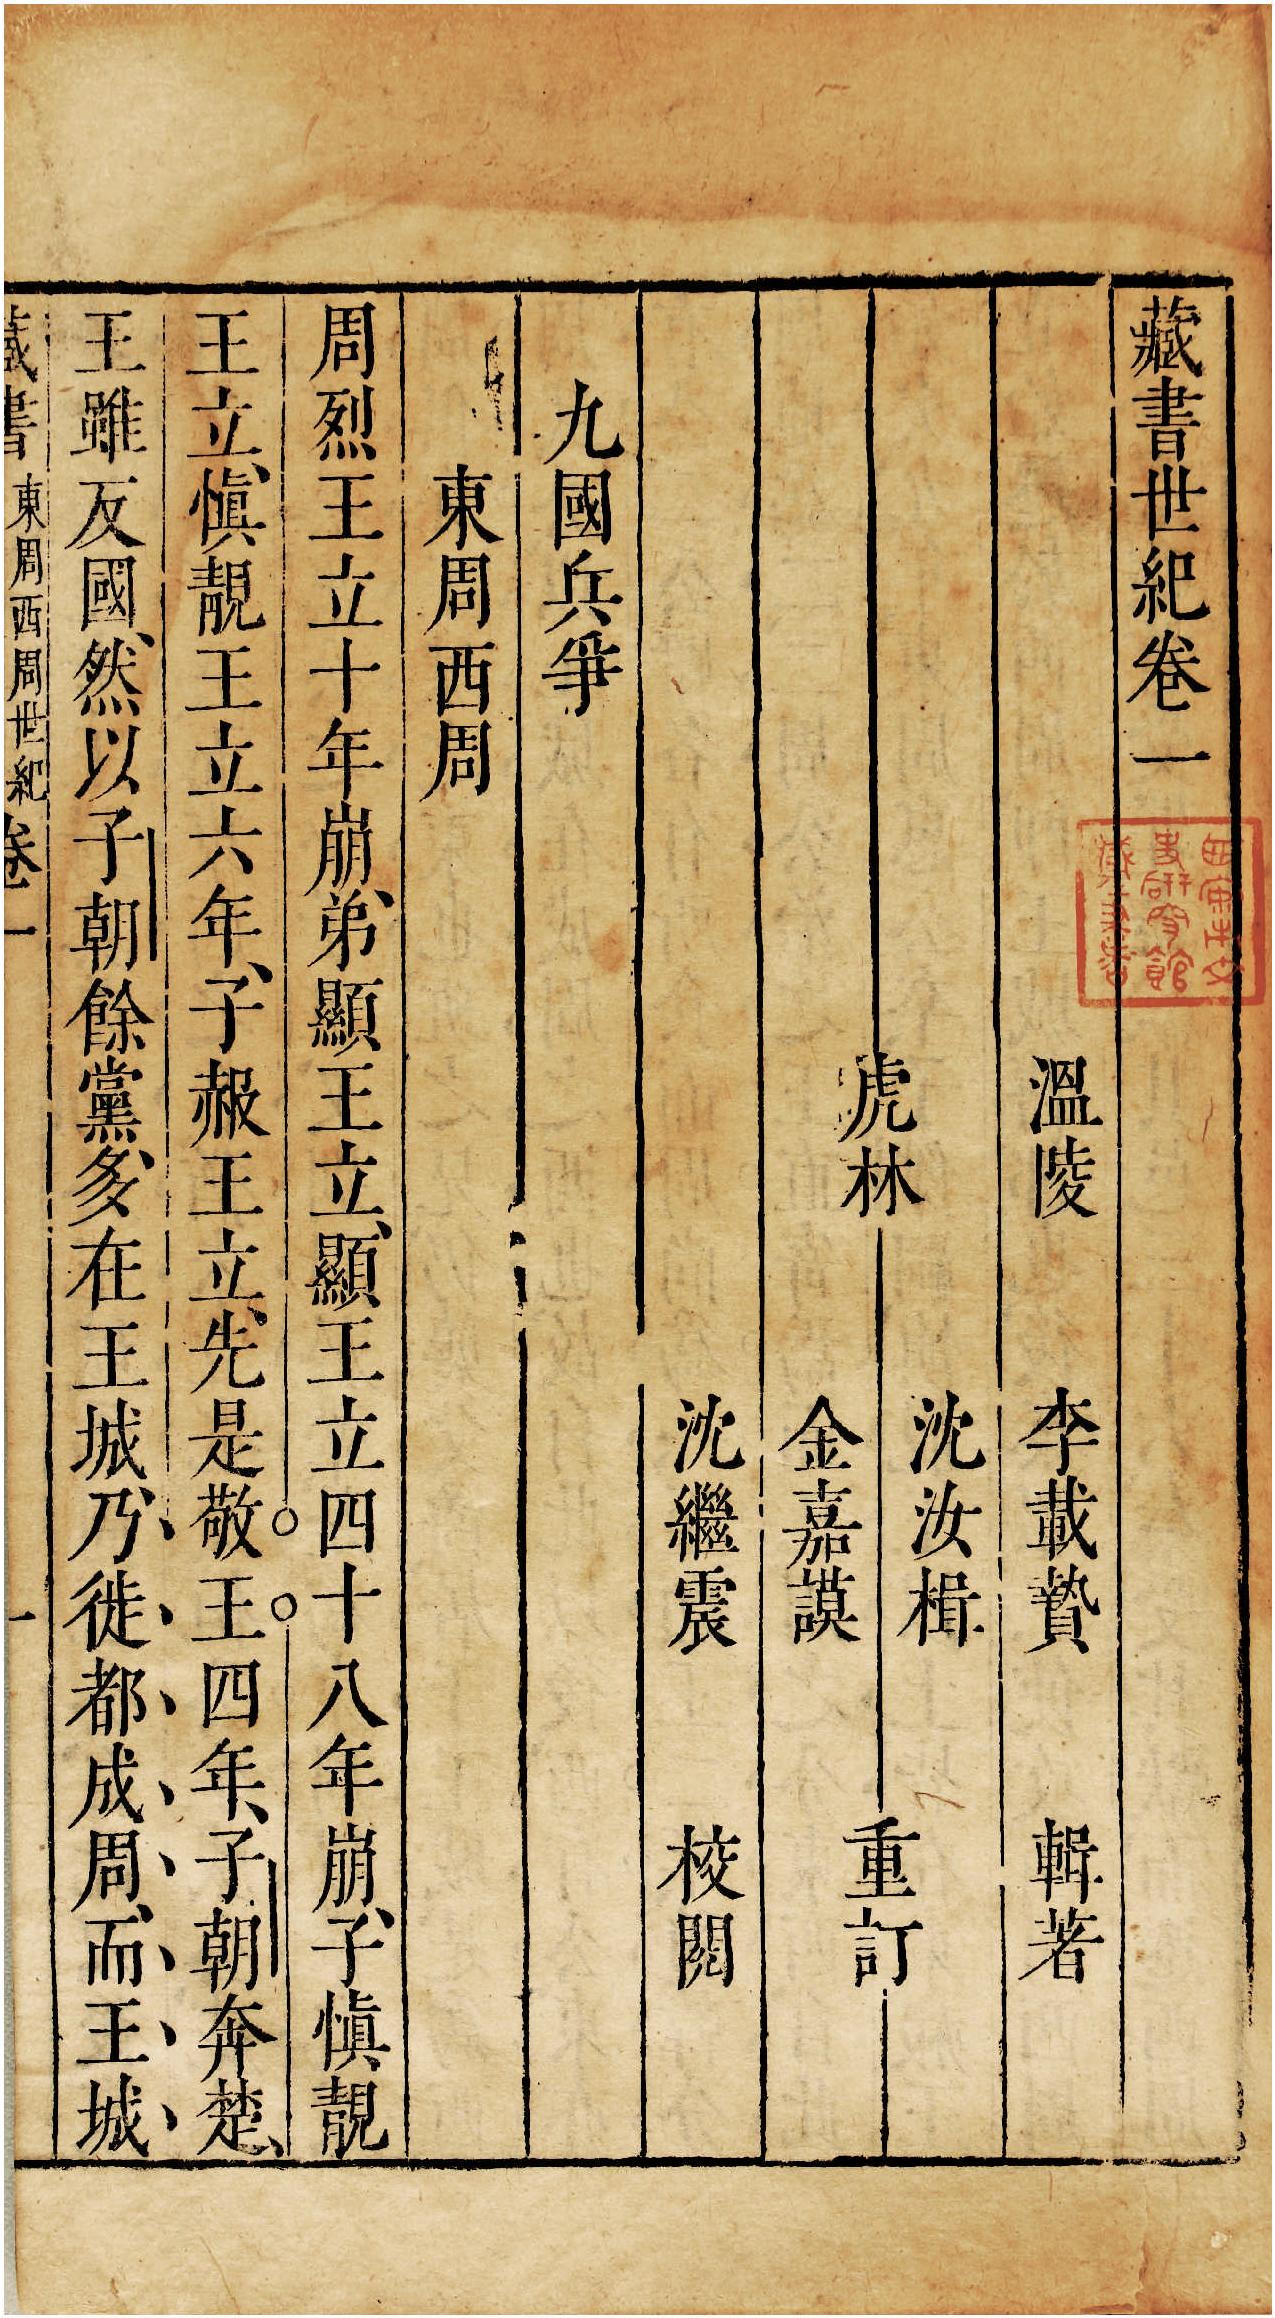 藏書世紀卷一
溫陵　李載贄　輯著
虎林　沈汝楫　金嘉謨　重訂
沈繼震　校閱
九國兵爭
東周西周
周烈王立十年崩、弟顯王立、顯王立四十八年崩、子慎靚
王立、慎靚王立六年、子赧王立、先是敬王四年、子朝奔楚、
王雖反國、然以子朝餘黨多、在王城、乃徙都成周、而王城
藏書　東周西周世紀　卷一　一